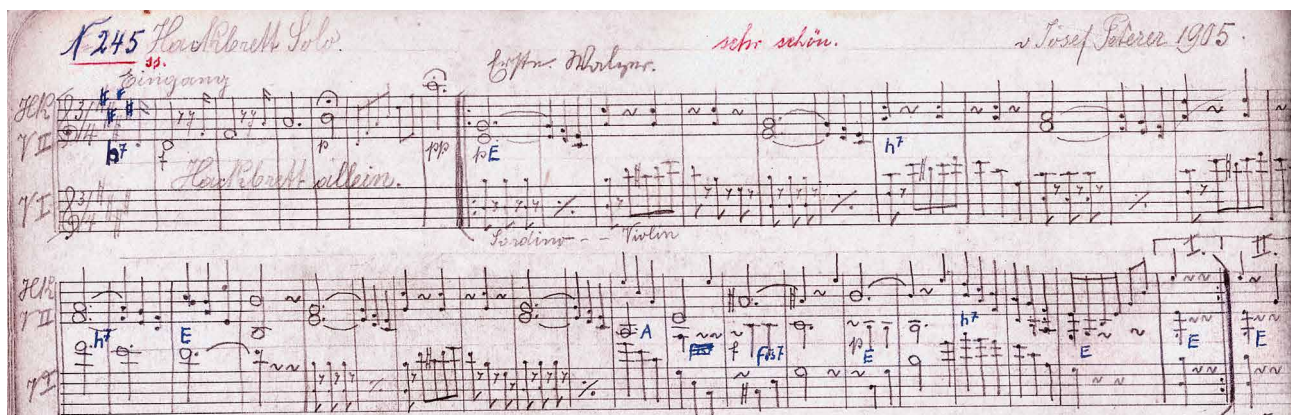 N 245 Hackbrett Solo. sehr schön. v Josef Peterer 1905.
Eingang Erster Walzer.
HK
V II h7 p pp p E h7
Hackbrett allein.
V I
Sordino - - Violin
I. II.
HK
V II h7 E A f fis7 p E h7 E E E
V I